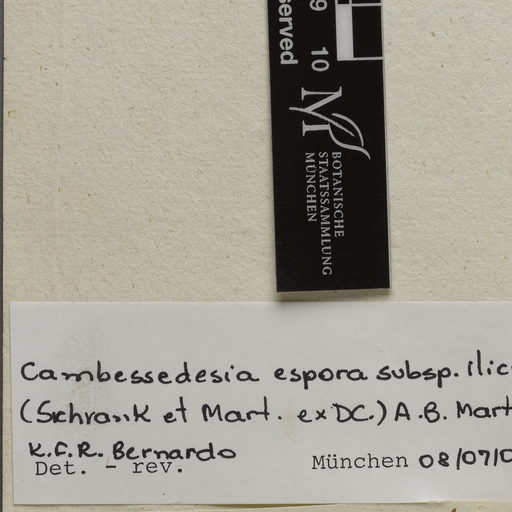 served
9 10
M
BOTANISCHE
STAATSSAMMLUNG
MÜNCHEN
Cambessedesia espora subsp. ilic
(Schrank et Mart. ex DC.) A.B. Mart
K.F.R. Bernardo
Det. - rev. München 08/07/0